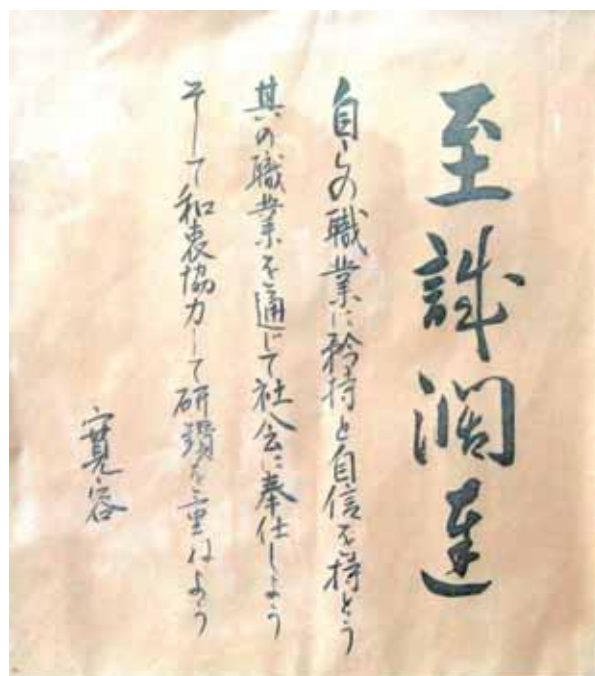 至誠濶達
自らの職業に矜持と自信を持とう
其の職業を通じて社会に奉仕しよう
そして和衷協力して研鑽を重ねよう
寛容